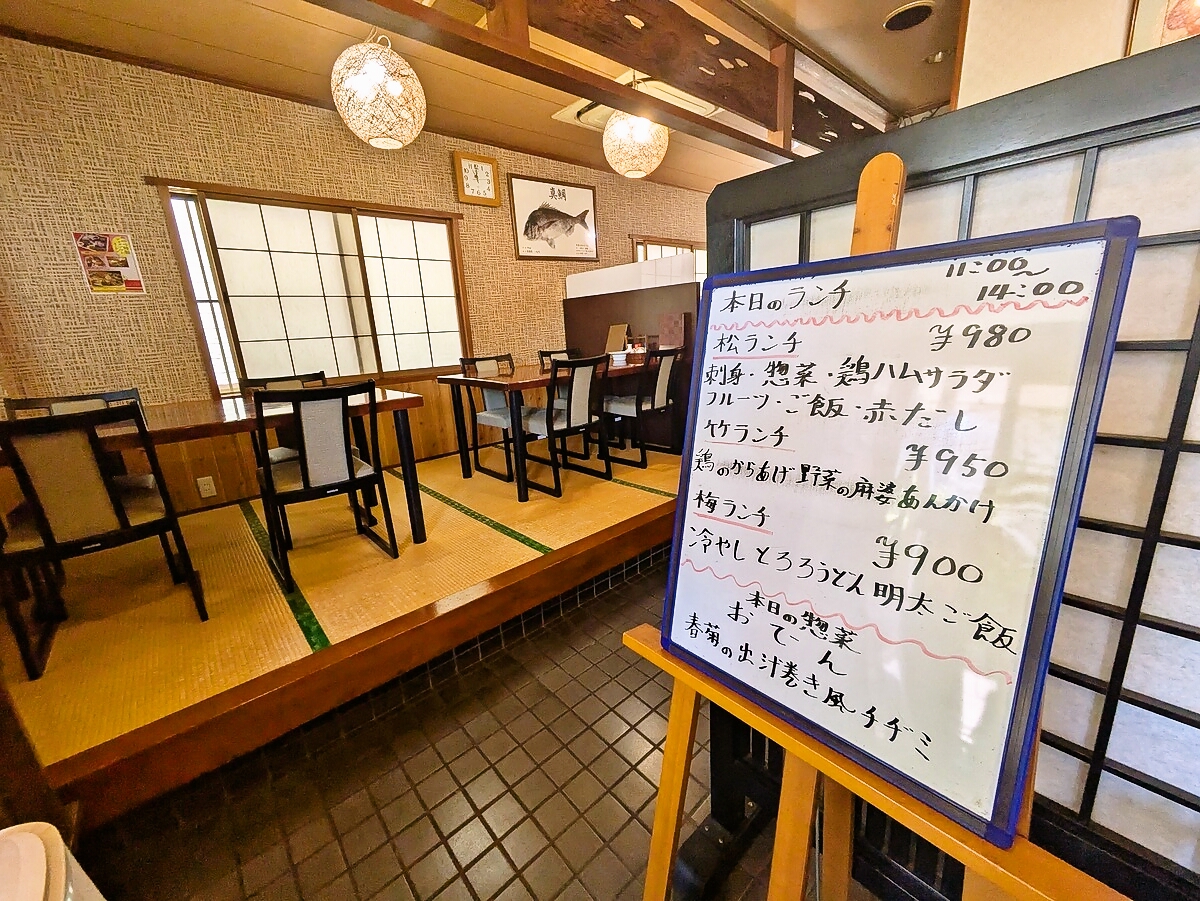 真鯛
本日のランチ 11:00～
14:00
松ランチ ¥980
刺身・惣菜・鶏ハムサラダ
フルーツ・ご飯・赤だし
竹ランチ ¥950
鶏のからあげ 野菜の麻婆あんかけ
梅ランチ
¥900
冷やしとろろうどん 明太ご飯
本日の惣菜
おでん
春菊の出汁巻き風チヂミ